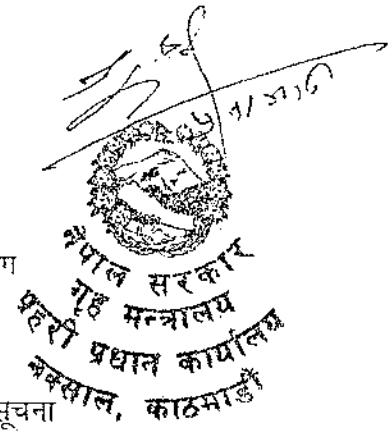 ग
नेपाल सरकार
गृह मन्त्रालय
प्रहरी प्रधान कार्यालय
नक्साल, काठमाडौं
सूचना